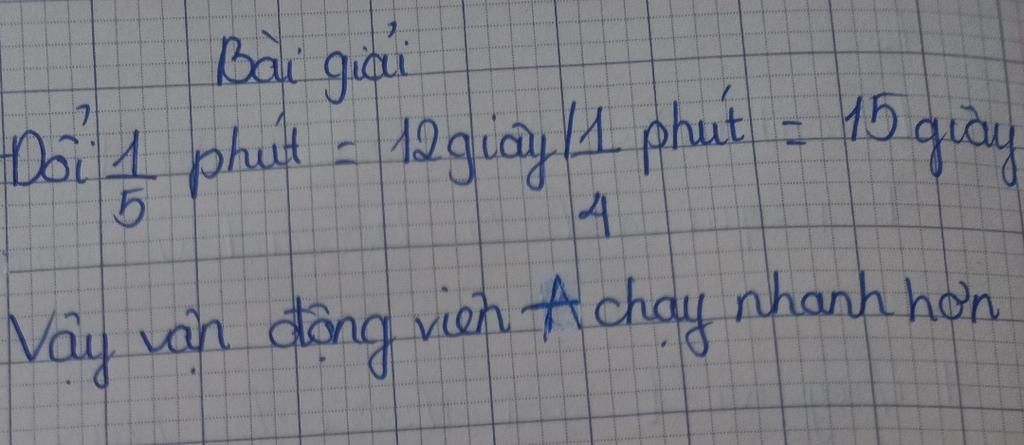 Bài giải
Đổi 1/5 phút = 12 giây | 1/4 phút = 15 giây
Vậy vận động viên A chạy nhanh hơn